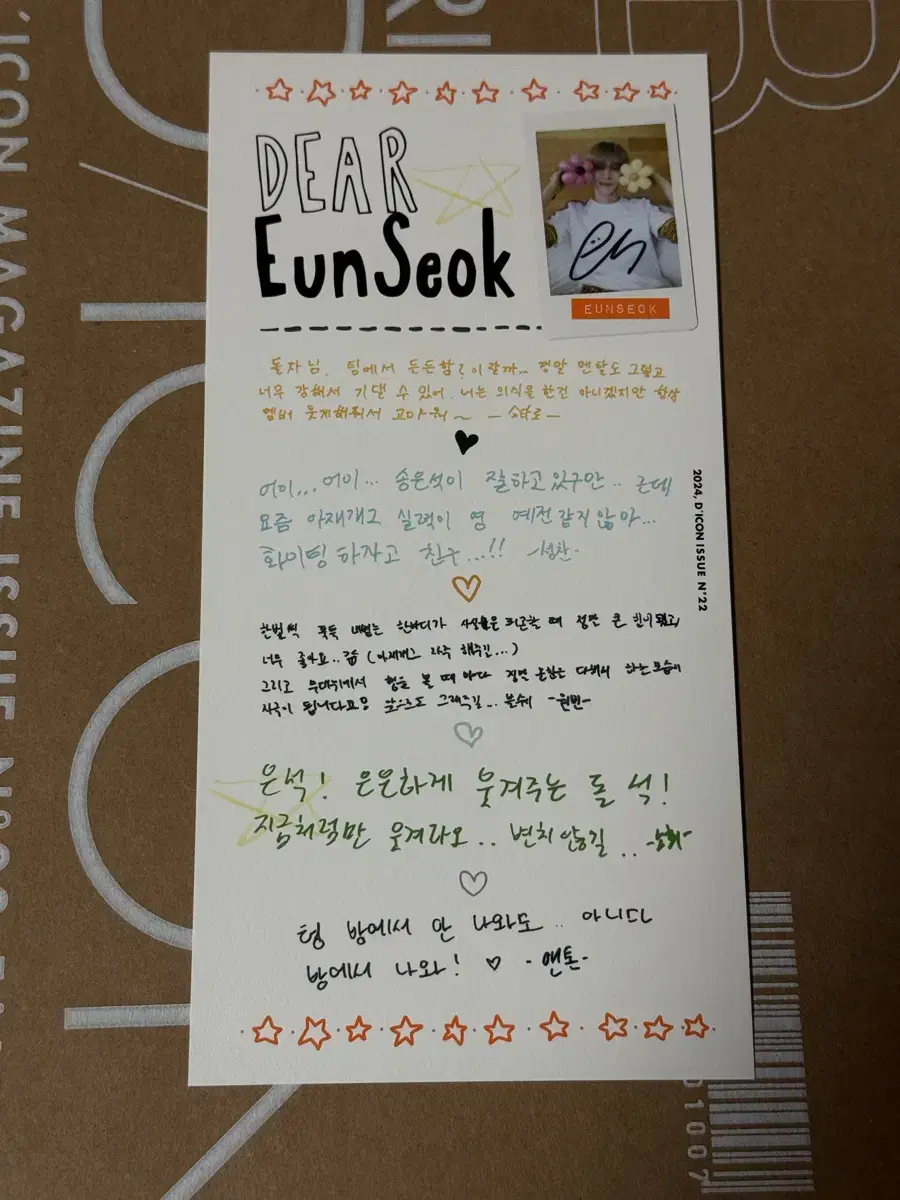 DEAR
EunSeok
EUNSEOK
돌자님. 팀에서 든든함?이랄까... 정말 멘탈도 그렇고
너무 강해서 기댈 수 있어. 너는 의식을 한건 아니겠지만 항상
멤버 웃게해줘서 고마워~ -쇼타로-
어이... 어이... 송은석이 잘하고 있구만.. 근데
요즘 아재개그 실력이 영 예전같지 않아...
화이팅 하자고 친구...!! -성찬-
2024, D'ICON ISSUE N°22
한번씩 툭툭 내뱉는 한마디가 피곤할 때 정말 큰 힘이 되고
너무 좋아요.. (아재개그 자주 해주긴...)
그리고 무대위에서 형을 볼 때 마다 정말 온힘을 다해서 하는모습이
자극이 됩니다요 앞으로도 그래주길... -원빈-
은석! 은은하게 웃겨주는 돌 석!
지금처럼만 웃겨다오.. 변치않길..
텅 방에서 안 나와도.. 아니다
방에서 나와! ♡ -앤톤-
D'ICON MAGAZINE ISSUE N°22
01007